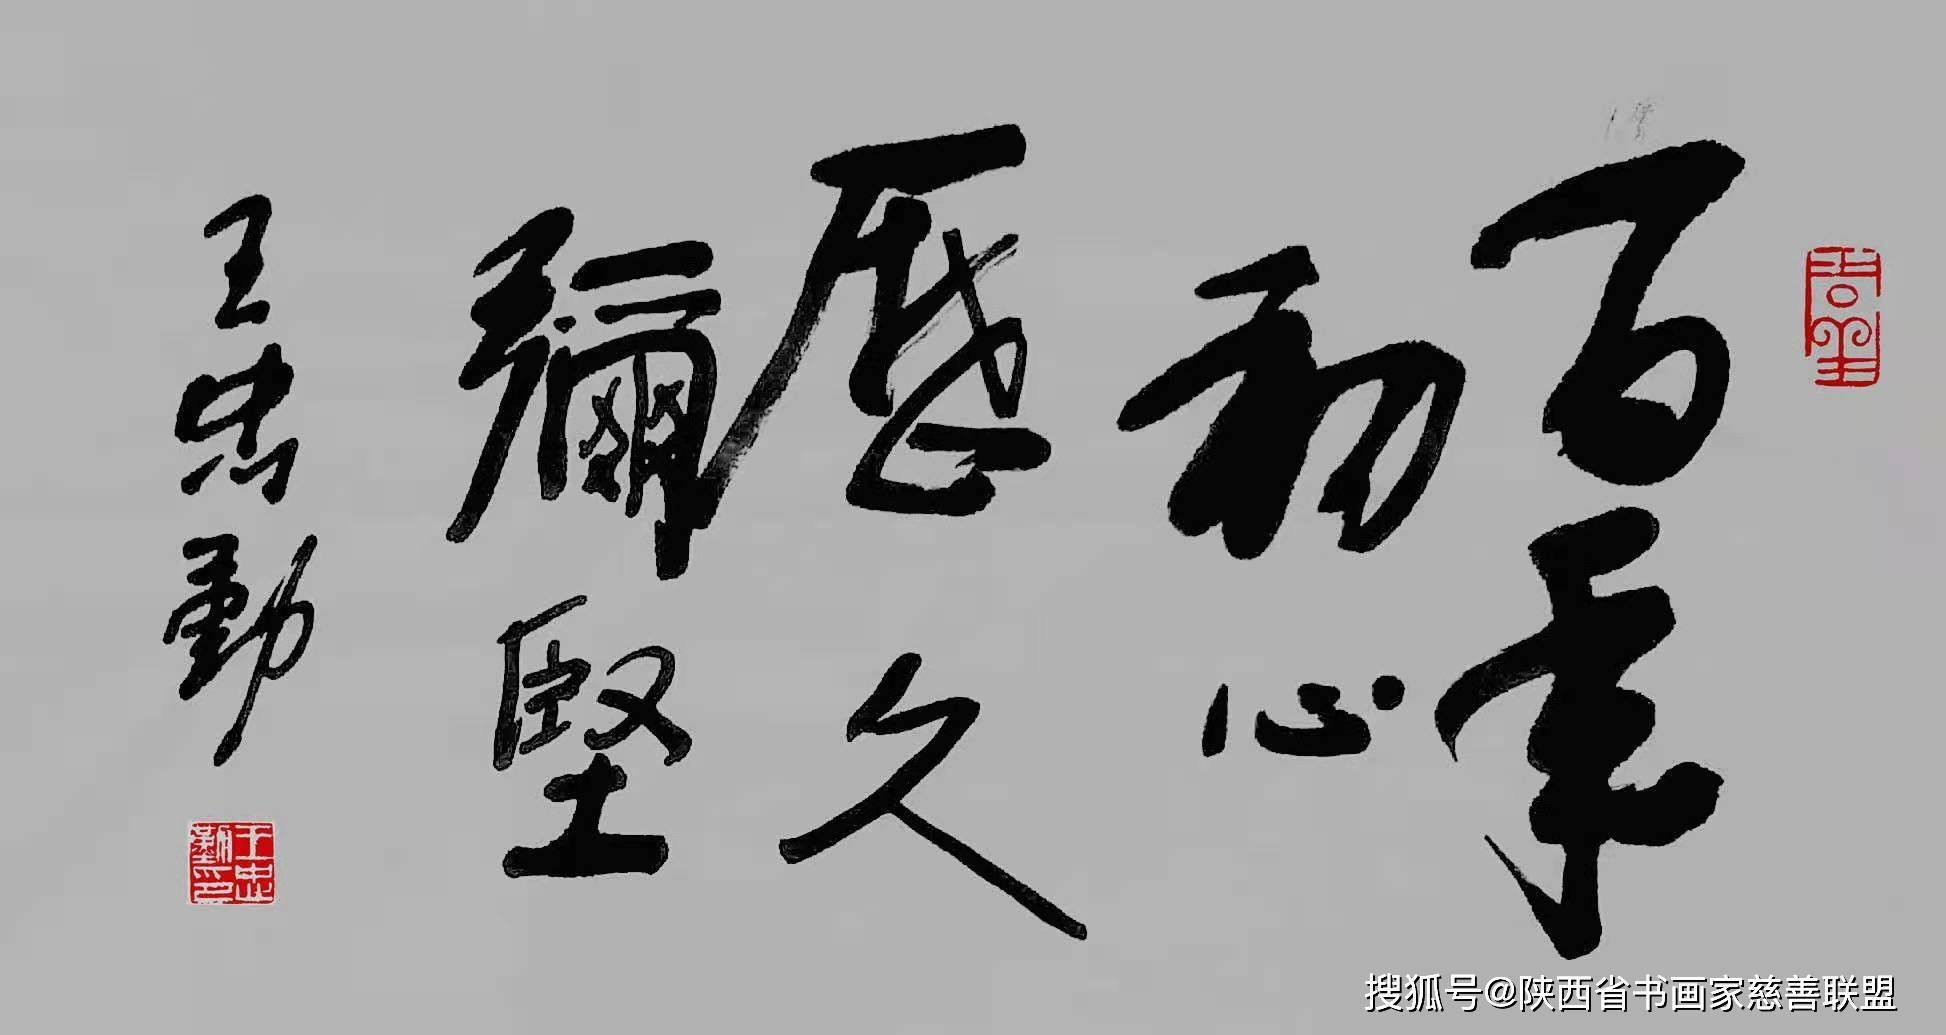 百年
初心
歷久
彌堅
王忠勤
王忠勤印
搜狐号@陕西省书画家慈善联盟